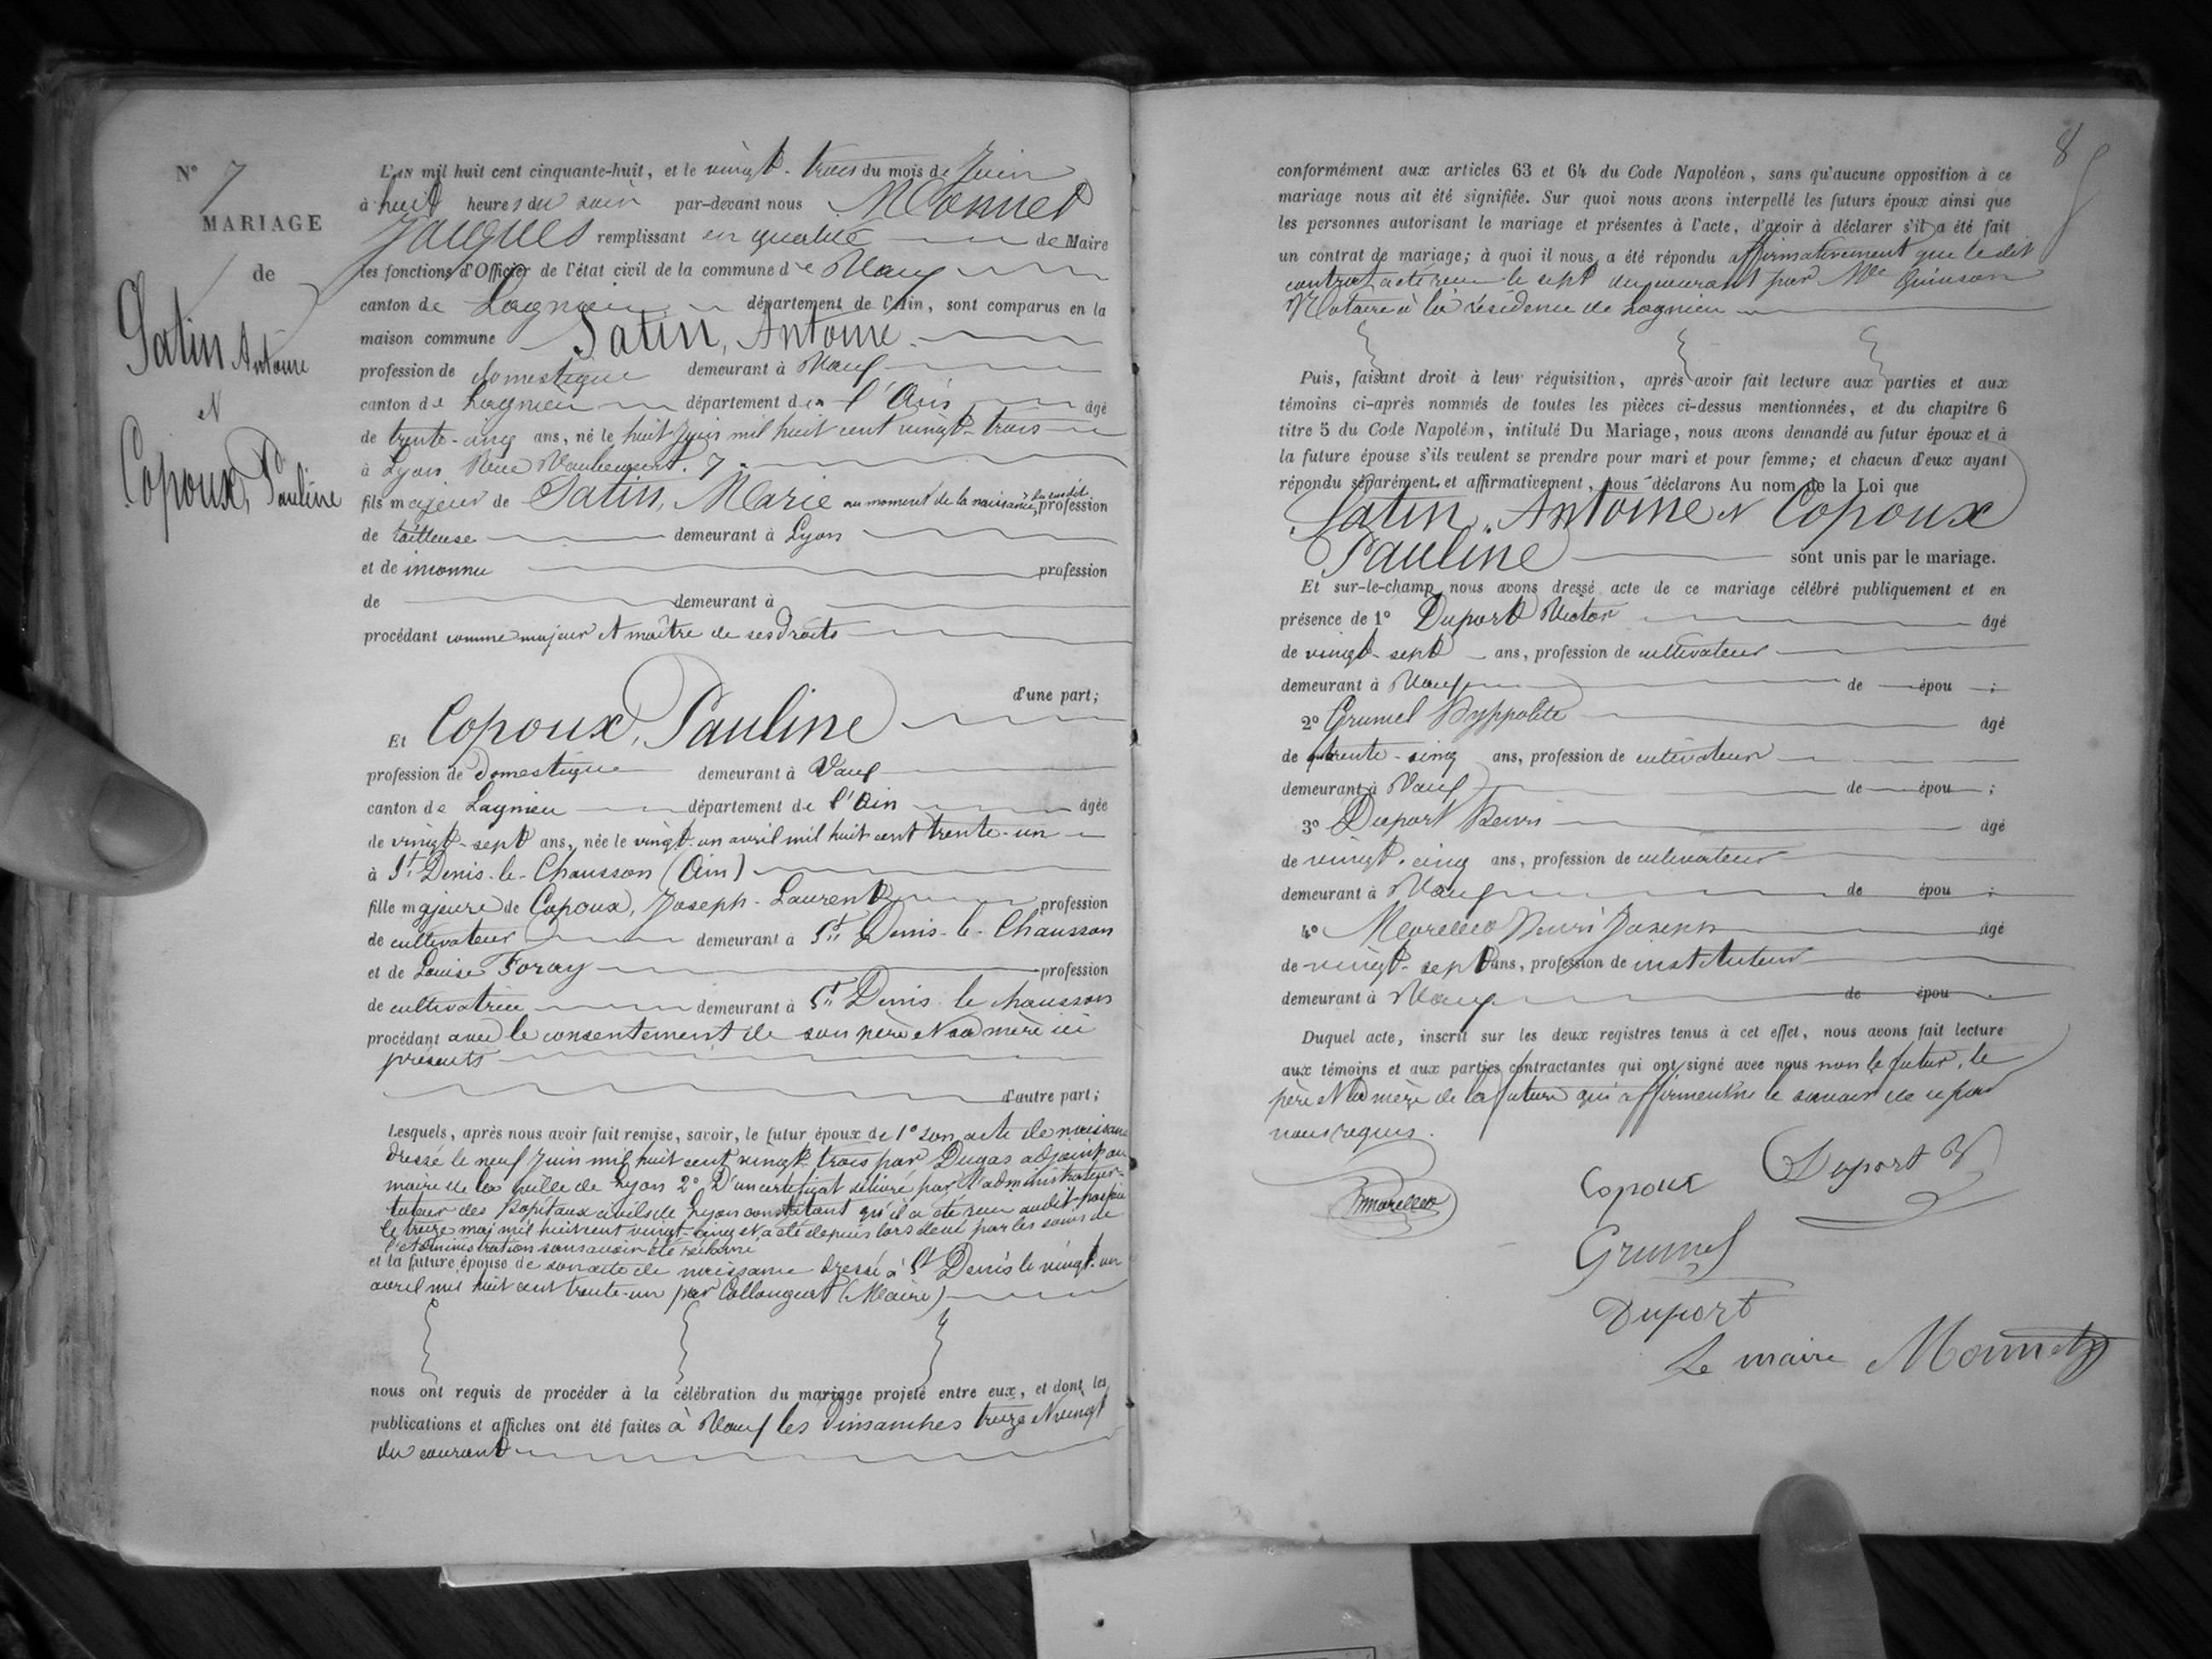 N° 7
MARIAGE
de
Satin Antoine
et
Copoux, Pauline
L'AN mil huit cent cinquante-huit, et le vingt-trois du mois de Juin
à huit heures du soir par-devant nous Monnet
Jacques remplissant en qualité de Maire
les fonctions d'Officier de l'état civil de la commune de Vaux
canton de Lagnieu département de l'Ain, sont comparus en la
maison commune Satin, Antoine
profession de domestique demeurant à Vaux
canton de Lagnieu département de l'Ain âgé
de trente-cinq ans, né le huit Juin mil huit cent vingt-trois
à Lyon Rue 7
fils majeur de Satin, Marie au moment de la naissance du susdit, profession
de tailleuse demeurant à Lyon
et de inconnu profession
de demeurant à
procédant comme majeur et maître de ses droits
d'une part;
Et Copoux, Pauline
profession de domestique demeurant à Vaux
canton de Lagnieu département de l'Ain âgée
de vingt-sept ans, née le vingt-un avril mil huit cent trente-un
à St Denis-le-Chausson (Ain)
fille majeure de Copoux, Joseph-Laurent profession
de cultivateur demeurant à St Denis-le-Chausson
et de Louise Foray profession
de cultivatrice demeurant à St Denis-le chausson
procédant avec le consentement de son père et sa mère ici
présents
d'autre part;
Lesquels, après nous avoir fait remise, savoir, le futur époux de 1° son acte de naissance
dressé le neuf Juin mil huit cent vingt-trois par Dugas adjoint au
maire de la ville de Lyon 2° D'un certificat délivré par l'administrateur-
tuteur des hôpitaux civils de Lyon constatant qu'il a été reçu audit hospice
le treize mai mil huit cent vingt-cinq et a été depuis lors élevé par les soins de
l'administration sans avoir été réclamé
et la future épouse de son acte de naissance dressé à St Denis le vingt-un
avril mil huit cent trente-un par Collonguat (Maire)
nous ont requis de procéder à la célébration du mariage projeté entre eux, et dont les
publications et affiches ont été faites à Vaux les Dimanches treize et vingt
du courant
8
conformément aux articles 63 et 64 du Code Napoléon, sans qu'aucune opposition à ce
mariage nous ait été signifiée. Sur quoi nous avons interpellé les futurs époux ainsi que
les personnes autorisant le mariage et présentes à l'acte, d'avoir à déclarer s'il a été fait
un contrat de mariage; à quoi il nous a été répondu affirmativement que le dit
contrat a été reçu le sept du courant par Me Quinson
Notaire à la résidence de Lagnieu
Puis, faisant droit à leur réquisition, après avoir fait lecture aux parties et aux
témoins ci-après nommés de toutes les pièces ci-dessus mentionnées, et du chapitre 6
titre 5 du Code Napoléon, intitulé Du Mariage, nous avons demandé au futur époux et à
la future épouse s'ils veulent se prendre pour mari et pour femme; et chacun d'eux ayant
répondu séparément et affirmativement, nous déclarons Au nom de la Loi que
Satin, Antoine et Copoux
Pauline sont unis par le mariage.
Et sur-le-champ nous avons dressé acte de ce mariage célébré publiquement et en
présence de 1° Duport Victor âgé
de vingt-sept ans, profession de cultivateur
demeurant à Vaux de épou ;
2° Grumel Hyppolite âgé
de trente-cinq ans, profession de cultivateur
demeurant à Vaux de épou ;
3° Duport Henri âgé
de vingt-cinq ans, profession de cultivateur
demeurant à Vaux de épou ;
4° Morellet Henri Joseph âgé
de vingt-sept ans, profession de instituteur
demeurant à Vaux de épou .
Duquel acte, inscrit sur les deux registres tenus à cet effet, nous avons fait lecture
aux témoins et aux parties contractantes qui ont signé avec nous non le futur, le
père et la mère de la future qui affirment ne le savoir de ce par
nous requis.
Hmorellet
Copoux
Duport V
Grumel
Duport
Le maire Monnet